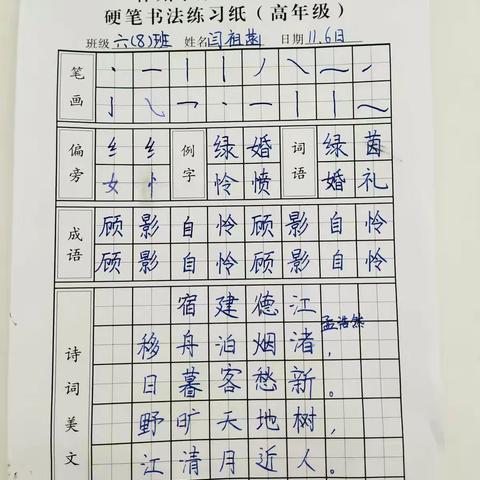 硬笔书法练习纸（高年级）
班级 六(8)班 姓名 闫祖茵 日期 11.6日
笔画
偏旁 纟 纟 例字 绿 婚 词语 绿 茵
女 忄 怜 愤 婚 礼
成语 顾 影 自 怜 顾 影 自 怜
顾 影 自 怜 顾 影 自 怜
诗词美文
宿建德江
孟浩然
移舟泊烟渚，
日暮客愁新。
野旷天地树，
江清月近人。